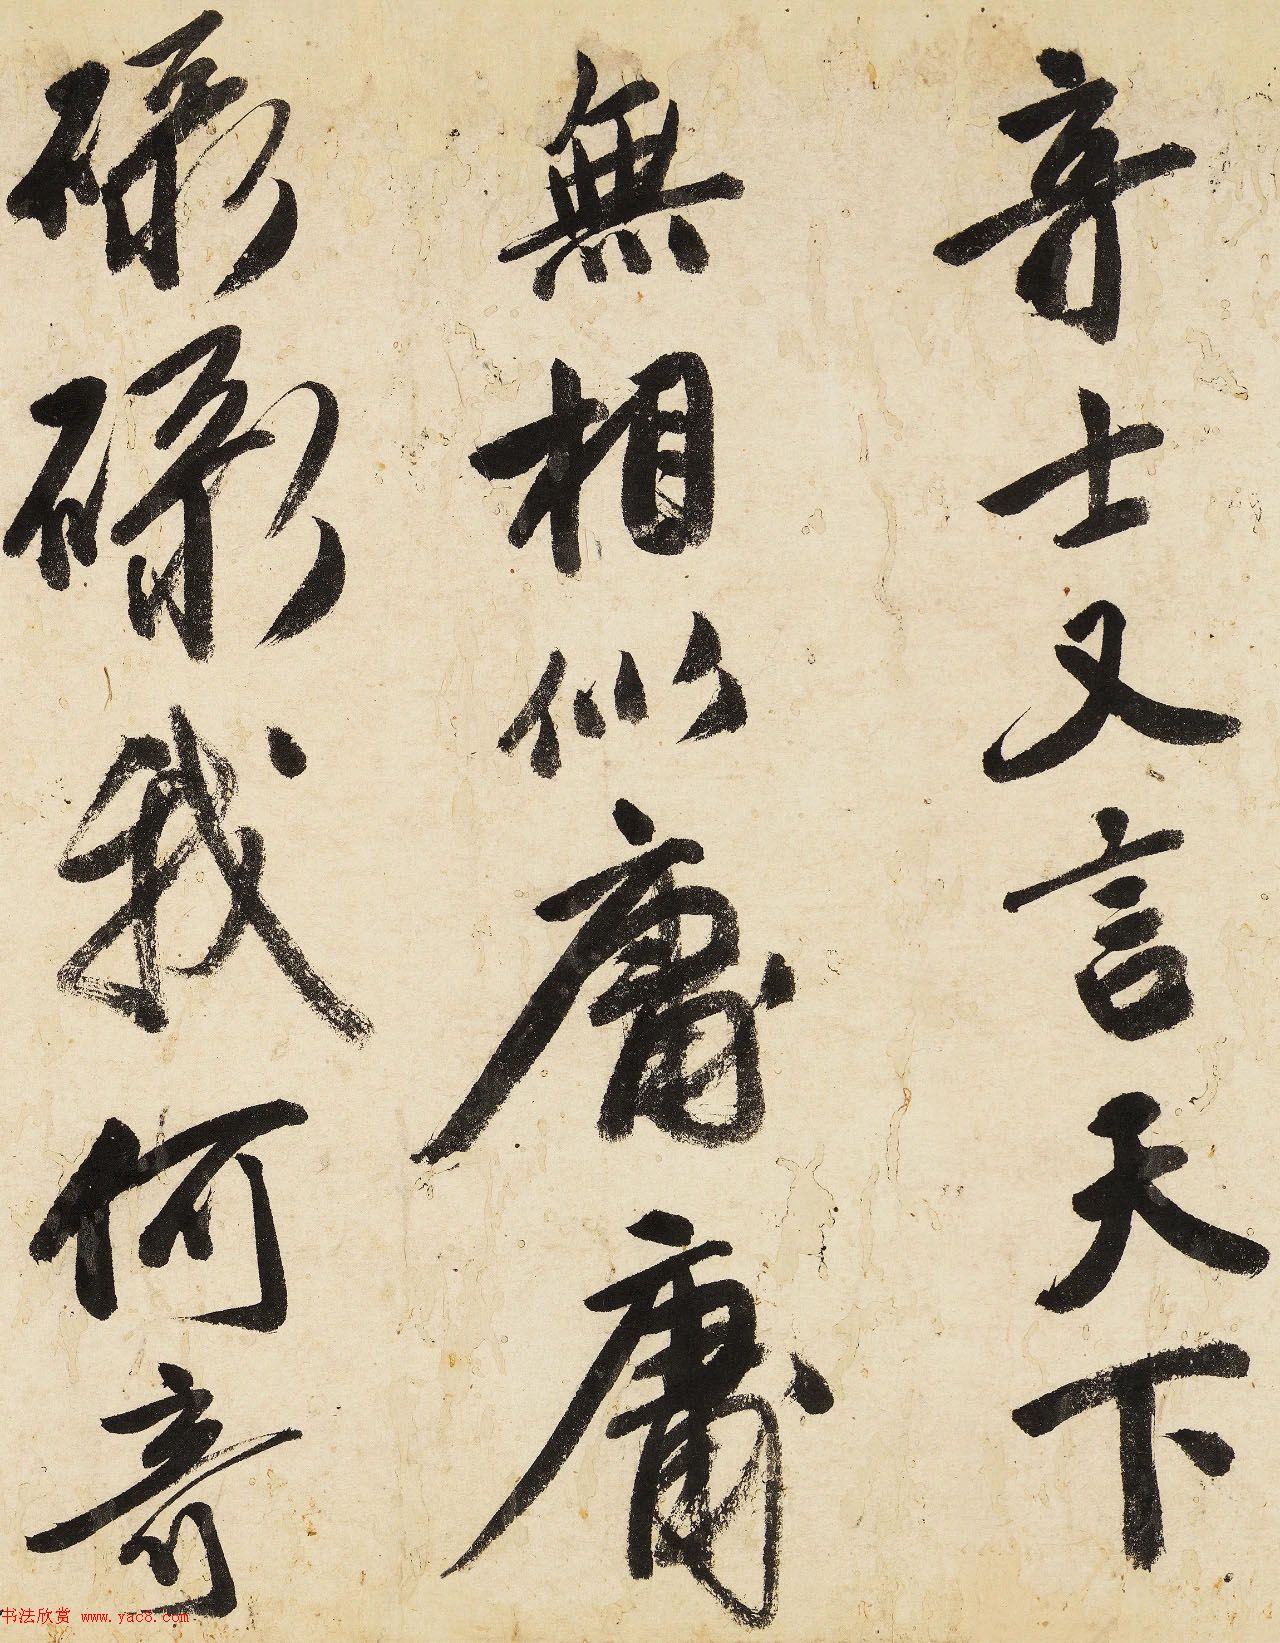 奇士又言天下
無相似庸庸
碌碌我何奇
书法欣赏 www.yac8.com